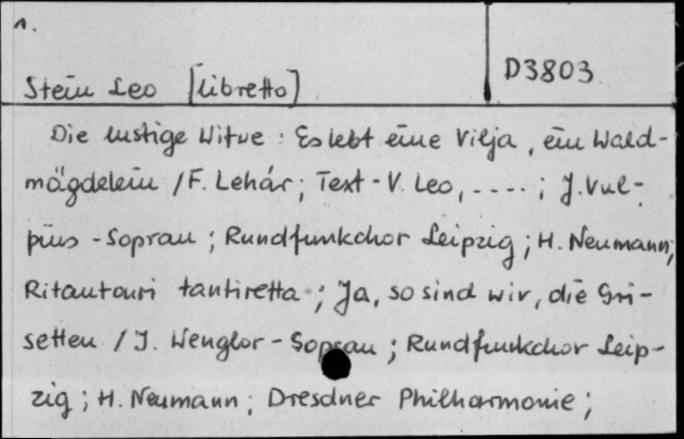 1.
Stein Leo [libretto]
D3803
Die lustige Witve: Es lebt eine Vilja, ein Wald-
mägdelein / F. Lehár; Text - V. Leo, ----; J. Vul-
pius - Sopran; Rundfunkchor Leipzig; H. Neumann;
Ritantouri tantiretta; Ja, so sind wir, die Gri-
setten / J. Wenglor - Sopran; Rundfunkchor Leip-
zig; H. Neumann; Dresdner Philharmonie;